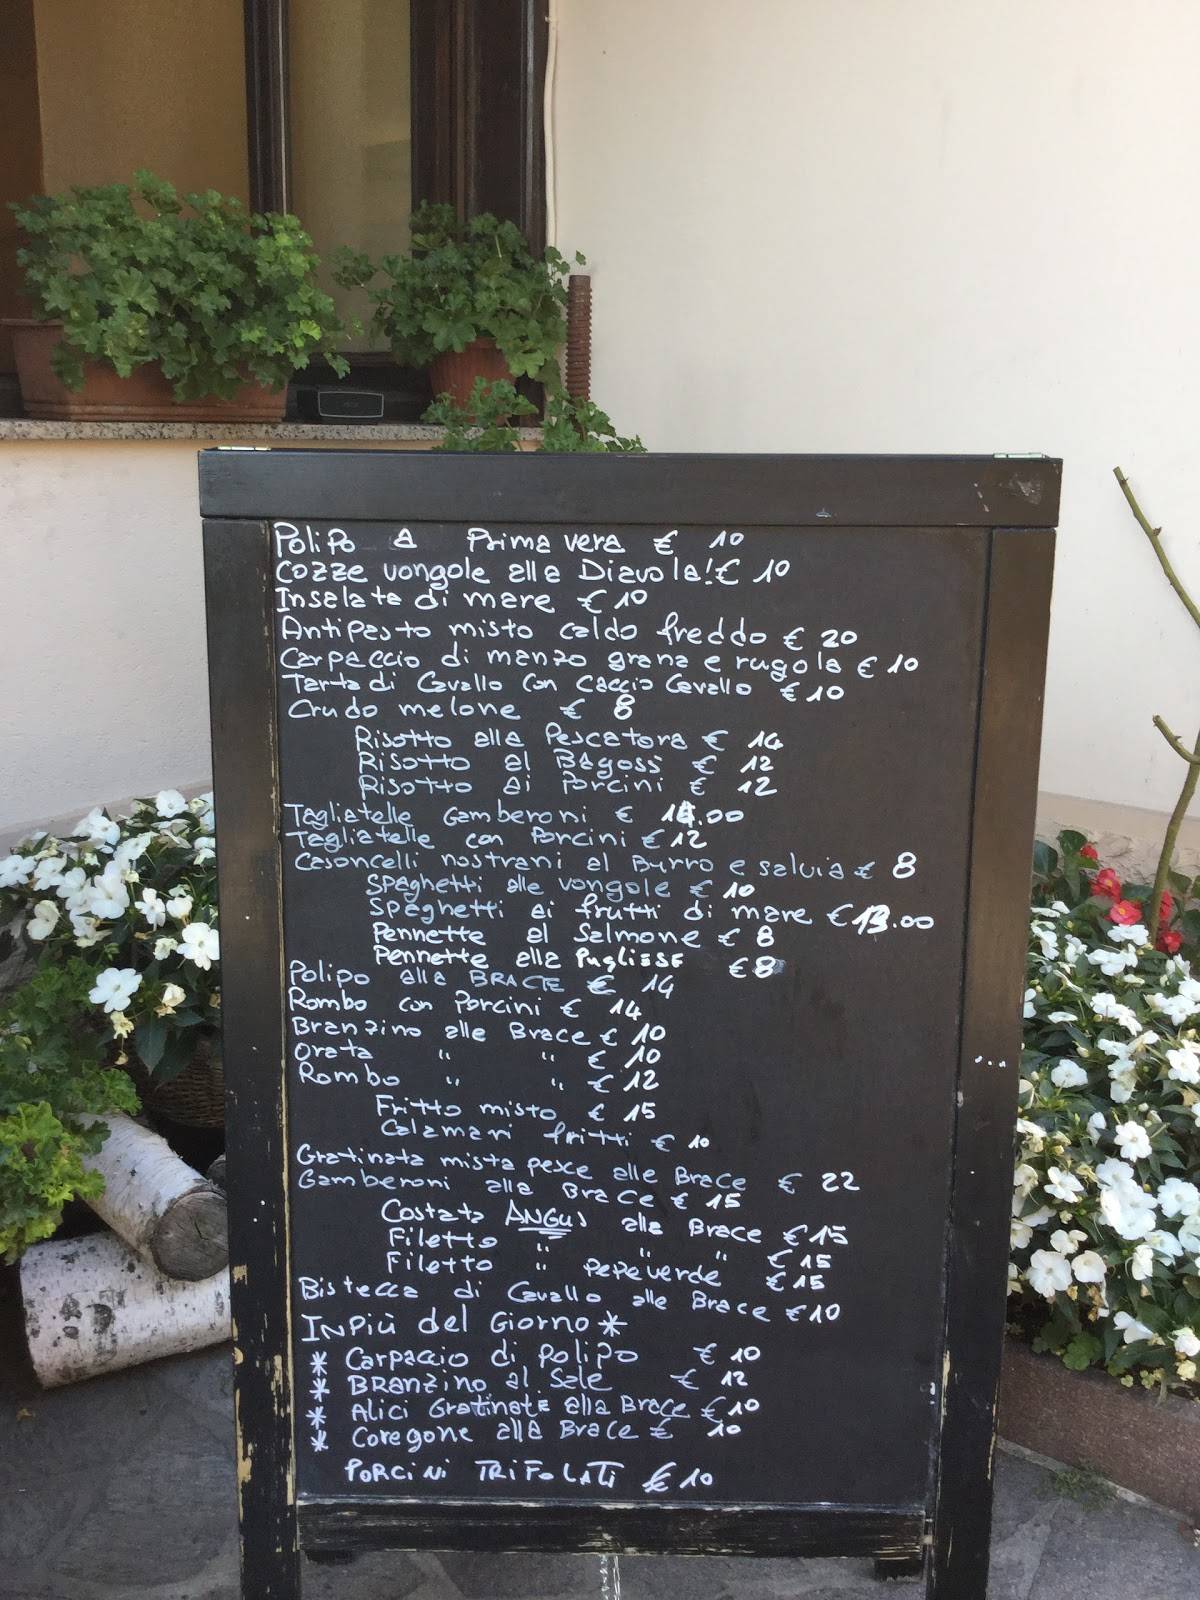 Polipo a Primavera € 10
Cozze vongole alla Diavola! € 10
Insalata di mare € 10
Antipasto misto caldo freddo € 20
Carpaccio di manzo grana e rugola € 10
Tarta di Cavallo con Caccio Cavallo € 10
Crudo melone € 8
Risotto alla Pescatora € 14
Risotto al Bagoss € 12
Risotto ai Porcini € 12
Tagliatelle Gamberoni € 14.00
Tagliatelle con Porcini € 12
Casoncelli nostrani al Burro e salvia € 8
Spaghetti alle vongole € 10
Spaghetti ai frutti di mare € 13.00
Pennette al Salmone € 8
Pennette alla Pugliese € 8
Polipo alla BRACE € 14
Rombo con Porcini € 14
Branzino alle Brace € 10
Orata " " € 10
Rombo " " € 12
Fritto misto € 15
Calamari fritti € 10
Gratinata mista pesce alle Brace € 22
Gamberoni alla Brace € 15
Costata ANGUS alla Brace € 15
Filetto " " " € 15
Filetto " Pepe verde € 15
Bistecca di Cavallo alle Brace € 10
IN Più del Giorno *
* Carpaccio di polipo € 10
* BRANZINO al Sale € 12
* Alici Gratinate alla Brace € 10
* Coregone alla Brace € 10
PORCINI TRIFOLATI € 10